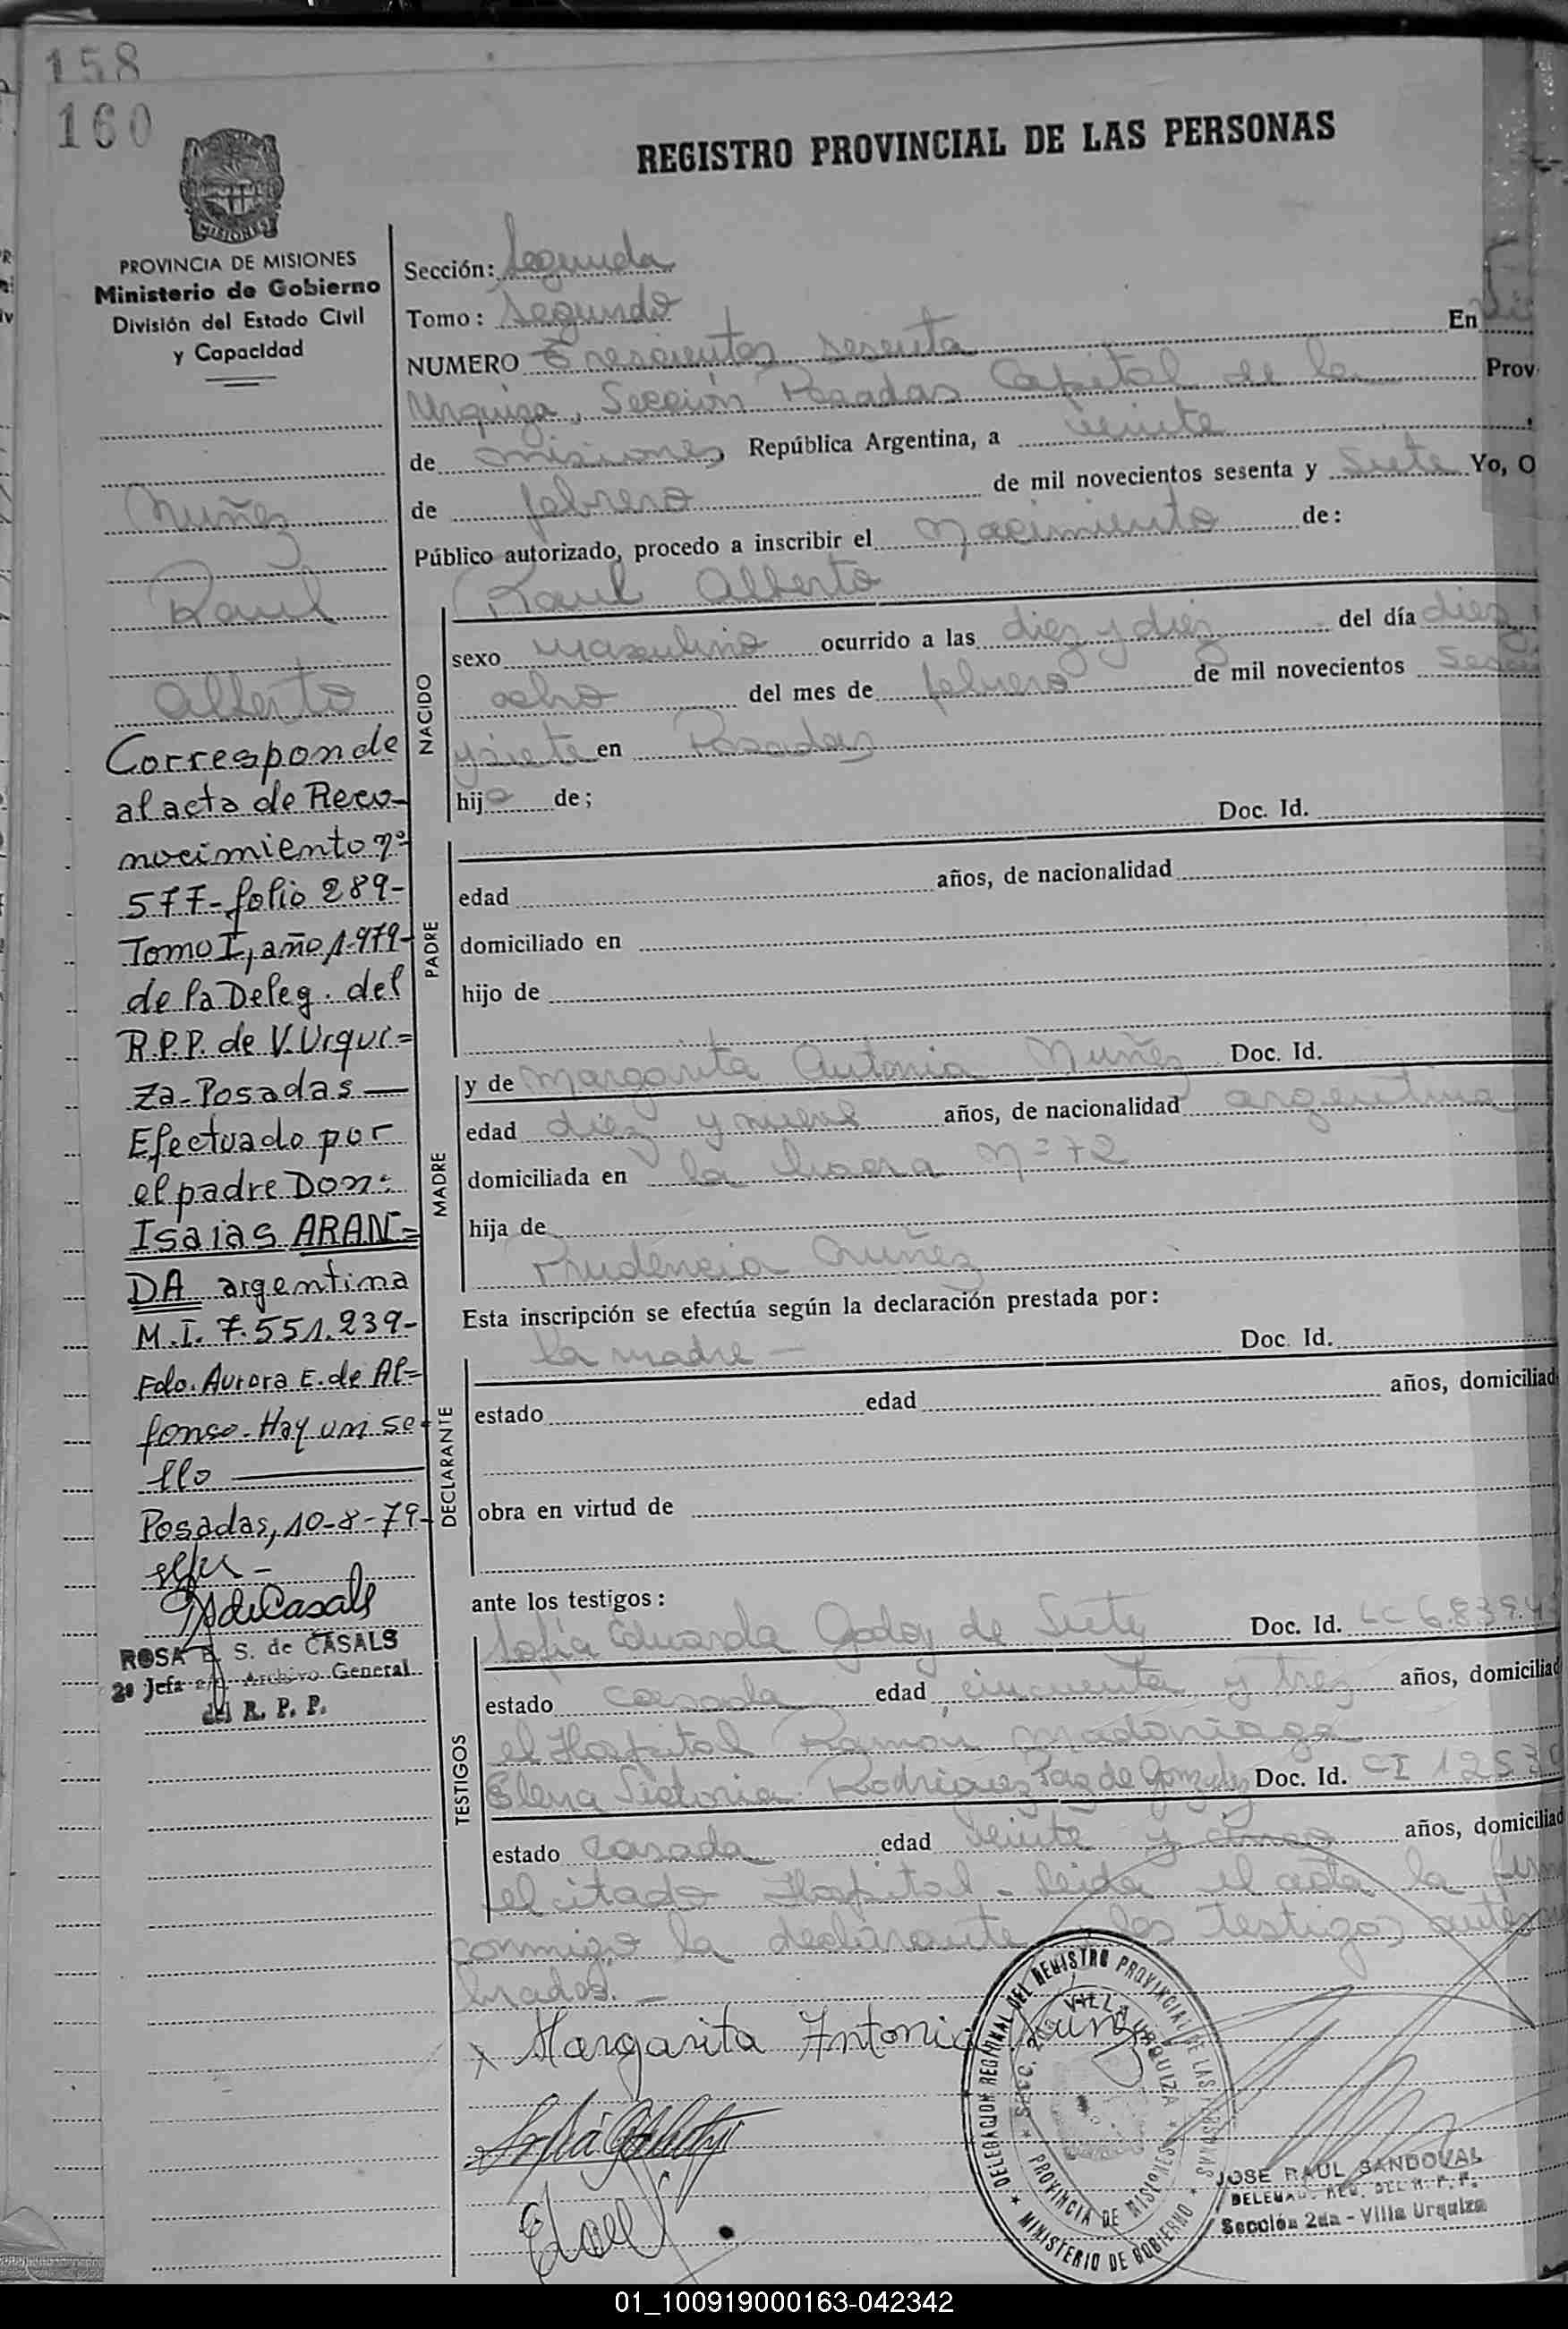 158
160
REGISTRO PROVINCIAL DE LAS PERSONAS
MISIONES
PROVINCIA DE MISIONES
Ministerio de Gobierno
División del Estado Civil
y Capacidad
Nuñez
Raul
Alberto
Corresponde
al acta de Reco-
nocimiento nº
577-folio 289-
Tomo I, año 1.979-
de la Deleg. del
R.P.P. de V. Urqui=
za-Posadas—
Efectuado por
el padre Don:
Isaias ARAN=
DA argentina
M.I. 7.551.239-
Fdo. Aurora E. de Al=
fonso. Hay un se-
llo
Posadas, 10-8-79-
ROSA E. S. de CASALS
2ª Jefa Archivo General
del R. P. P.
Sección: Segunda
Tomo: Segundo
NUMERO Trescientos sesenta En
Urquiza, Sección Posadas Capital de la Prov
de Misiones, República Argentina, a veinte
de febrero de mil novecientos sesenta y siete Yo, O
Público autorizado, procedo a inscribir el Nacimiento de:
Raul Alberto
NACIDO
sexo masculino ocurrido a las diez y diez del día diez y
ocho del mes de febrero de mil novecientos sesen
y siete en Posadas
hijo de;
Doc. Id.
PADRE
edad años, de nacionalidad
domiciliado en
hijo de
y de Margarita Antonia Nuñez Doc. Id.
MADRE
edad diez y nueve años, de nacionalidad argentina
domiciliada en la chacra Nº 72
hija de
Prudencia Nuñez
Esta inscripción se efectúa según la declaración prestada por:
la madre — Doc. Id.
DECLARANTE
estado edad años, domiciliad
obra en virtud de
ante los testigos:
Sofia Eduarda Godoy de Doc. Id. LC 6.839.4
TESTIGOS
estado casada edad cincuenta y tres años, domiciliad
el Hospital Ramón Madariaga
Elena Rodriguez de Gonzalez Doc. Id. CI 12536
estado casada edad veinte y cinco años, domiciliad
el citado Hospital - leida el acta la firm
conmigo la declarante y los testigos antes
brados. —
x Margarita Antonia Nuñez
DELEGACION REGIONAL DEL REGISTRO PROVINCIAL DE LAS PERSONAS
SECC. 2da VILLA URQUIZA
PROVINCIA DE MISIONES
MINISTERIO DE GOBIERNO
JOSE RAUL SANDOVAL
DELEGADO REG. DEL R. P. P.
Sección 2da - Villa Urquiza
01_100919000163-042342